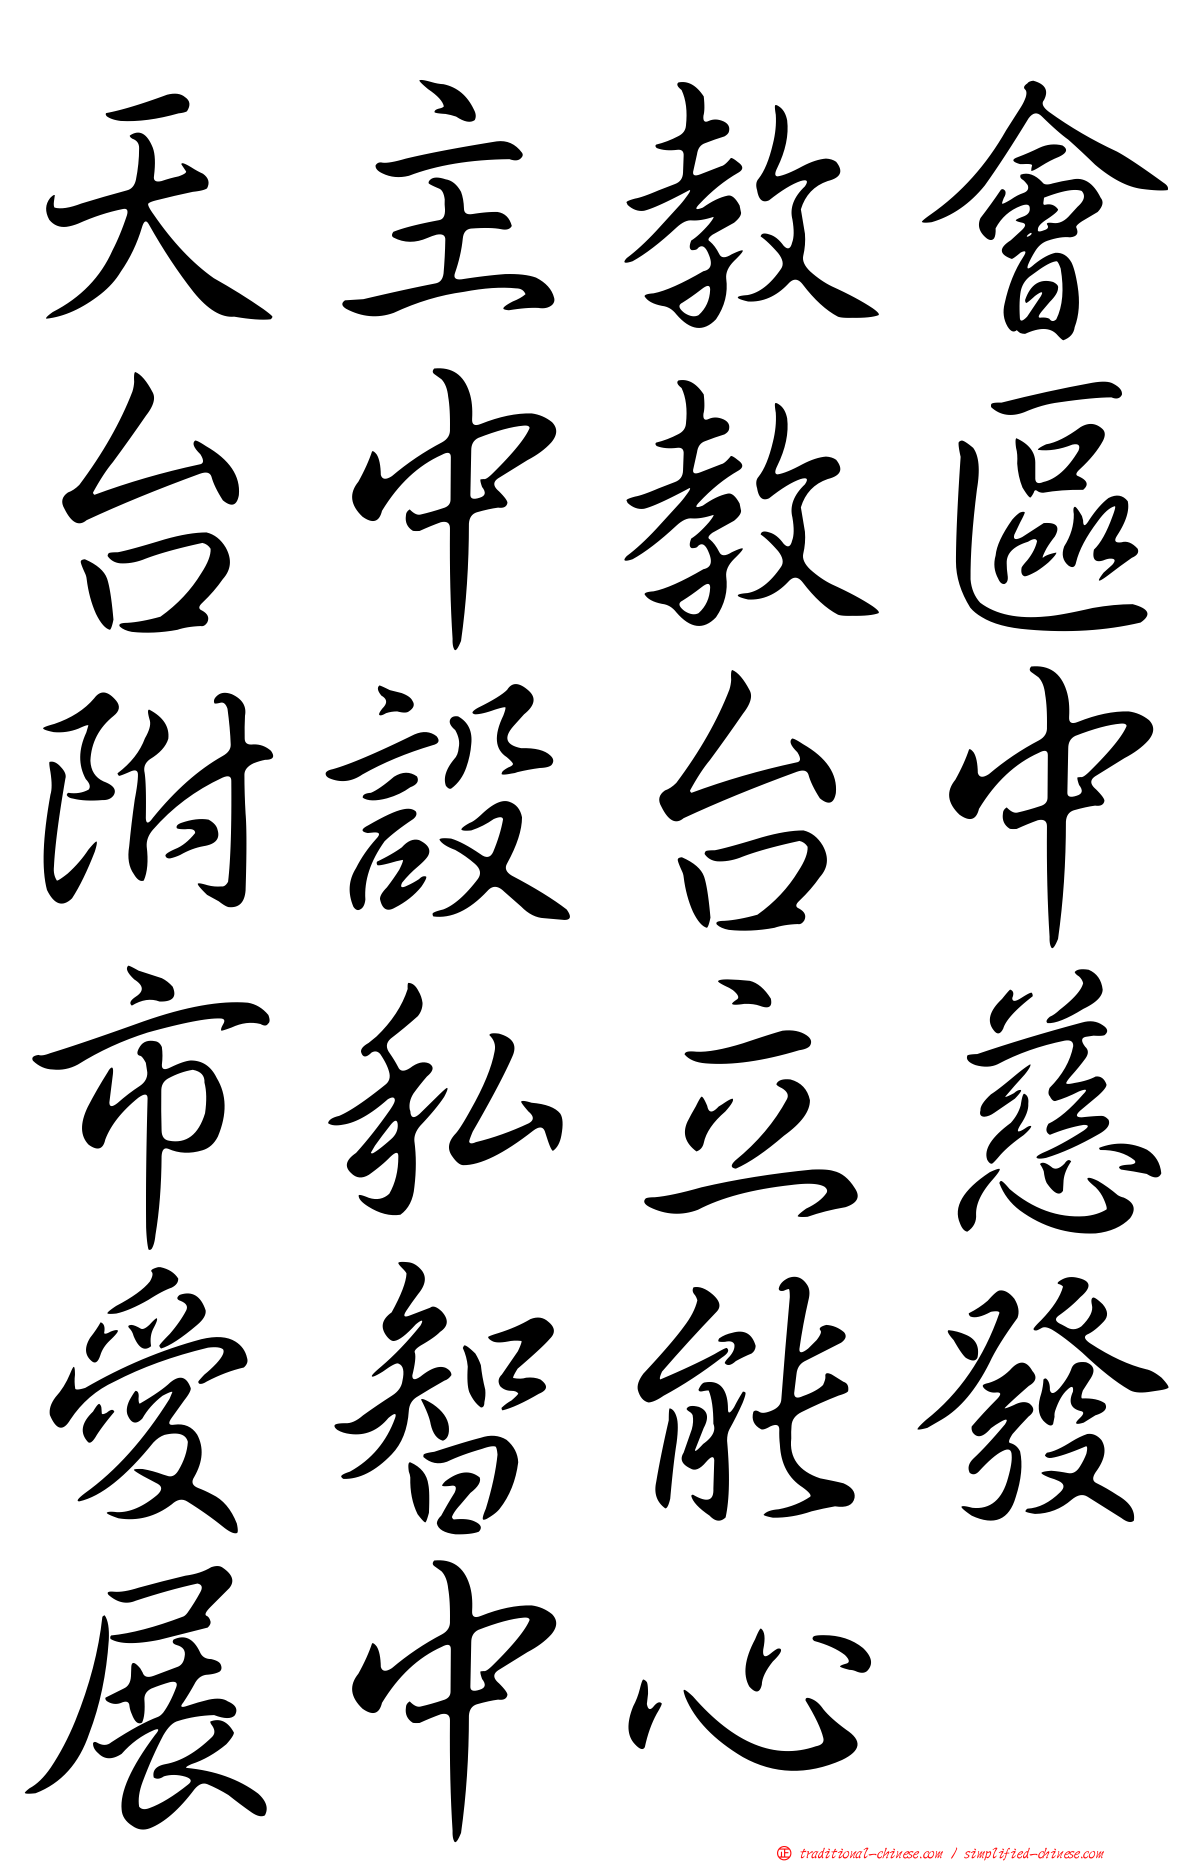 天主教會
台中教區
附設台中
市私立慈
愛智能發
展中心
正 traditional-chinese.com / simplified-chinese.com